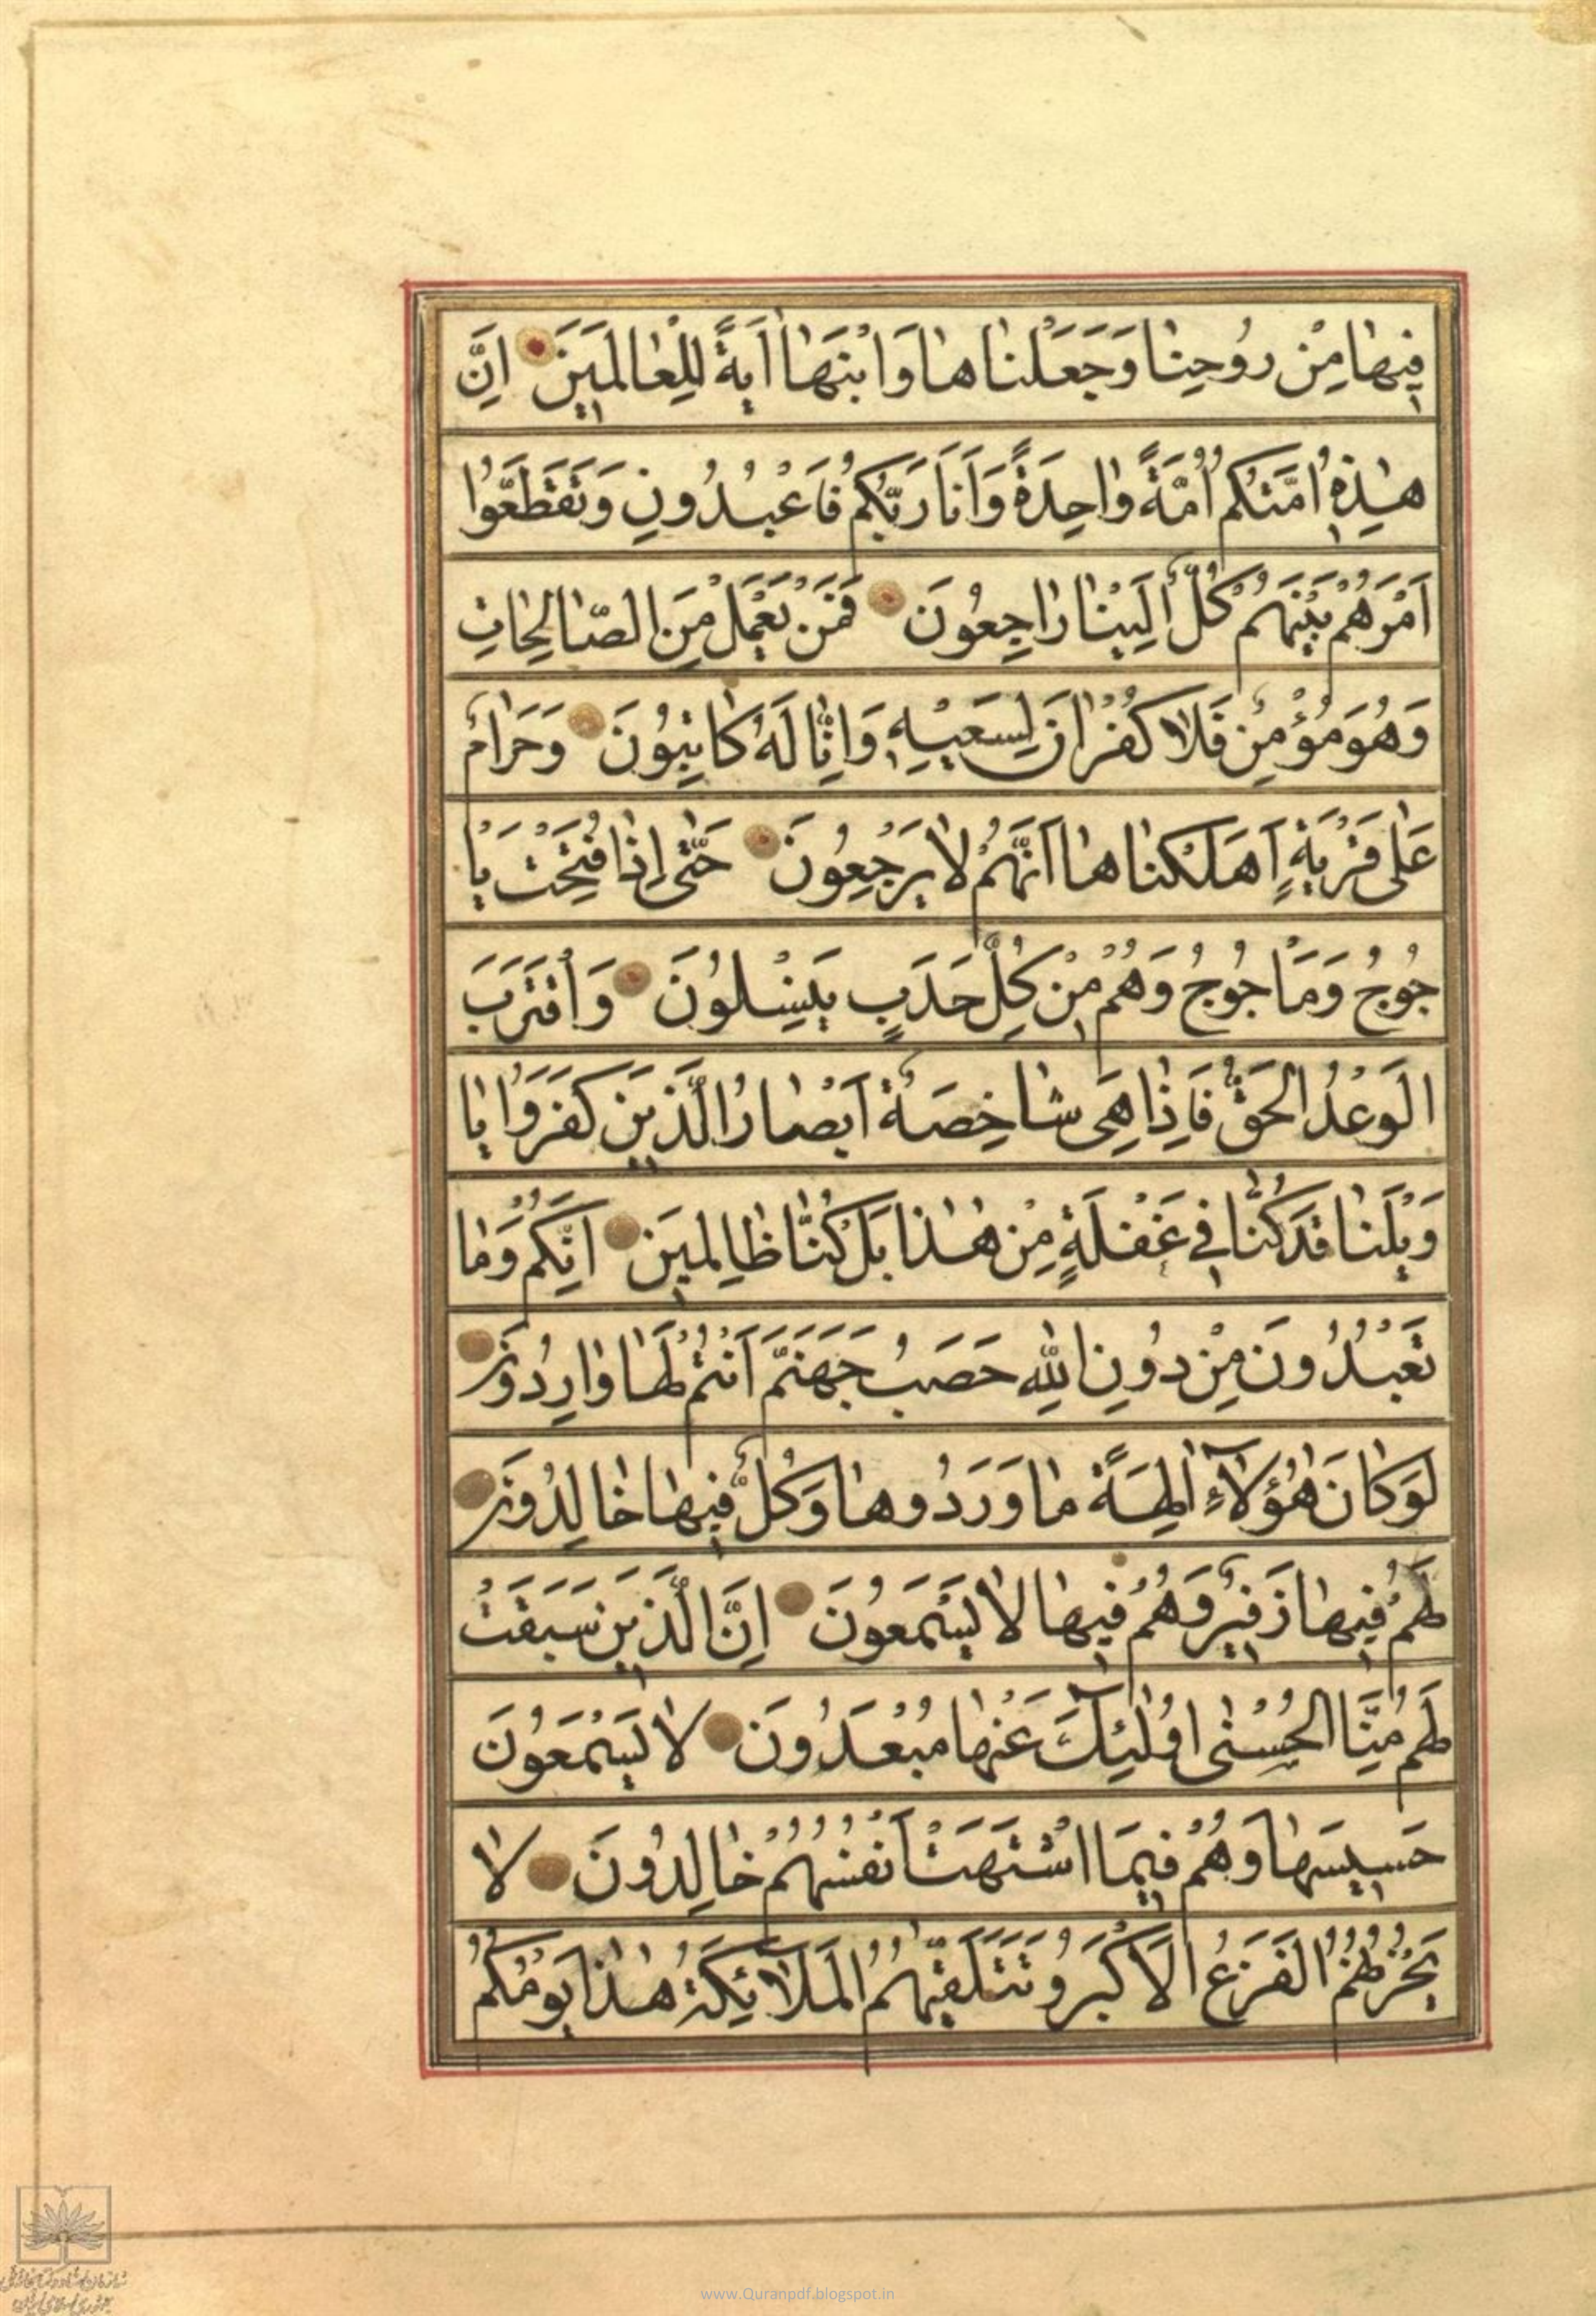 فِیهٰا مِنْ رُوحِنٰا وَجَعَلْنٰاهٰا وَابْنَهٰا اٰیَةً لِلْعٰالَمِینَ اِنَّ
هٰذِهِ اُمَّتُكُمْ اُمَّةً وٰاحِدَةً وَاَنَا رَبُّكُمْ فَاعْبُدُونِ وَتَقَطَّعُوا
اَمْرَهُمْ بَیْنَهُمْ كُلٌّ اِلَیْنٰا رٰاجِعُونَ فَمَنْ یَعْمَلْ مِنَ الصّٰالِحٰاتِ
وَهُوَ مُؤْمِنٌ فَلٰا كُفْرٰانَ لِسَعْیِهِ وَاِنّٰا لَهُ كٰاتِبُونَ وَحَرٰامٌ
عَلٰى قَرْیَةٍ اَهْلَكْنٰاهٰا اَنَّهُمْ لٰا یَرْجِعُونَ حَتّٰى اِذٰا فُتِحَتْ یَا
جُوجُ وَمَاجُوجُ وَهُمْ مِنْ كُلِّ حَدَبٍ یَنْسِلُونَ وَاقْتَرَبَ
الْوَعْدُ الْحَقُّ فَاِذٰا هِیَ شٰاخِصَةٌ اَبْصٰارُ الَّذِینَ كَفَرُوا یٰا
وَیْلَنٰا قَدْ كُنّٰا فِی غَفْلَةٍ مِنْ هٰذٰا بَلْ كُنّٰا ظٰالِمِینَ اِنَّكُمْ وَمٰا
تَعْبُدُونَ مِنْ دُونِ اللّٰهِ حَصَبُ جَهَنَّمَ اَنْتُمْ لَهٰا وٰارِدُونَ
لَوْ كٰانَ هٰؤُلٰاءِ اٰلِهَةً مٰا وَرَدُوهٰا وَكُلٌّ فِیهٰا خٰالِدُونَ
لَهُمْ فِیهٰا زَفِیرٌ وَهُمْ فِیهٰا لٰا یَسْمَعُونَ اِنَّ الَّذِینَ سَبَقَتْ
لَهُمْ مِنَّا الْحُسْنٰى اُولٰئِكَ عَنْهٰا مُبْعَدُونَ لٰا یَسْمَعُونَ
حَسِیسَهٰا وَهُمْ فِیمَا اشْتَهَتْ اَنْفُسُهُمْ خٰالِدُونَ لٰا
یَحْزُنُهُمُ الْفَزَعُ الْاَكْبَرُ وَتَتَلَقّٰیهُمُ الْمَلٰآئِكَةُ هٰذٰا یَوْمُكُمُ
www.Quranpdf.blogspot.in